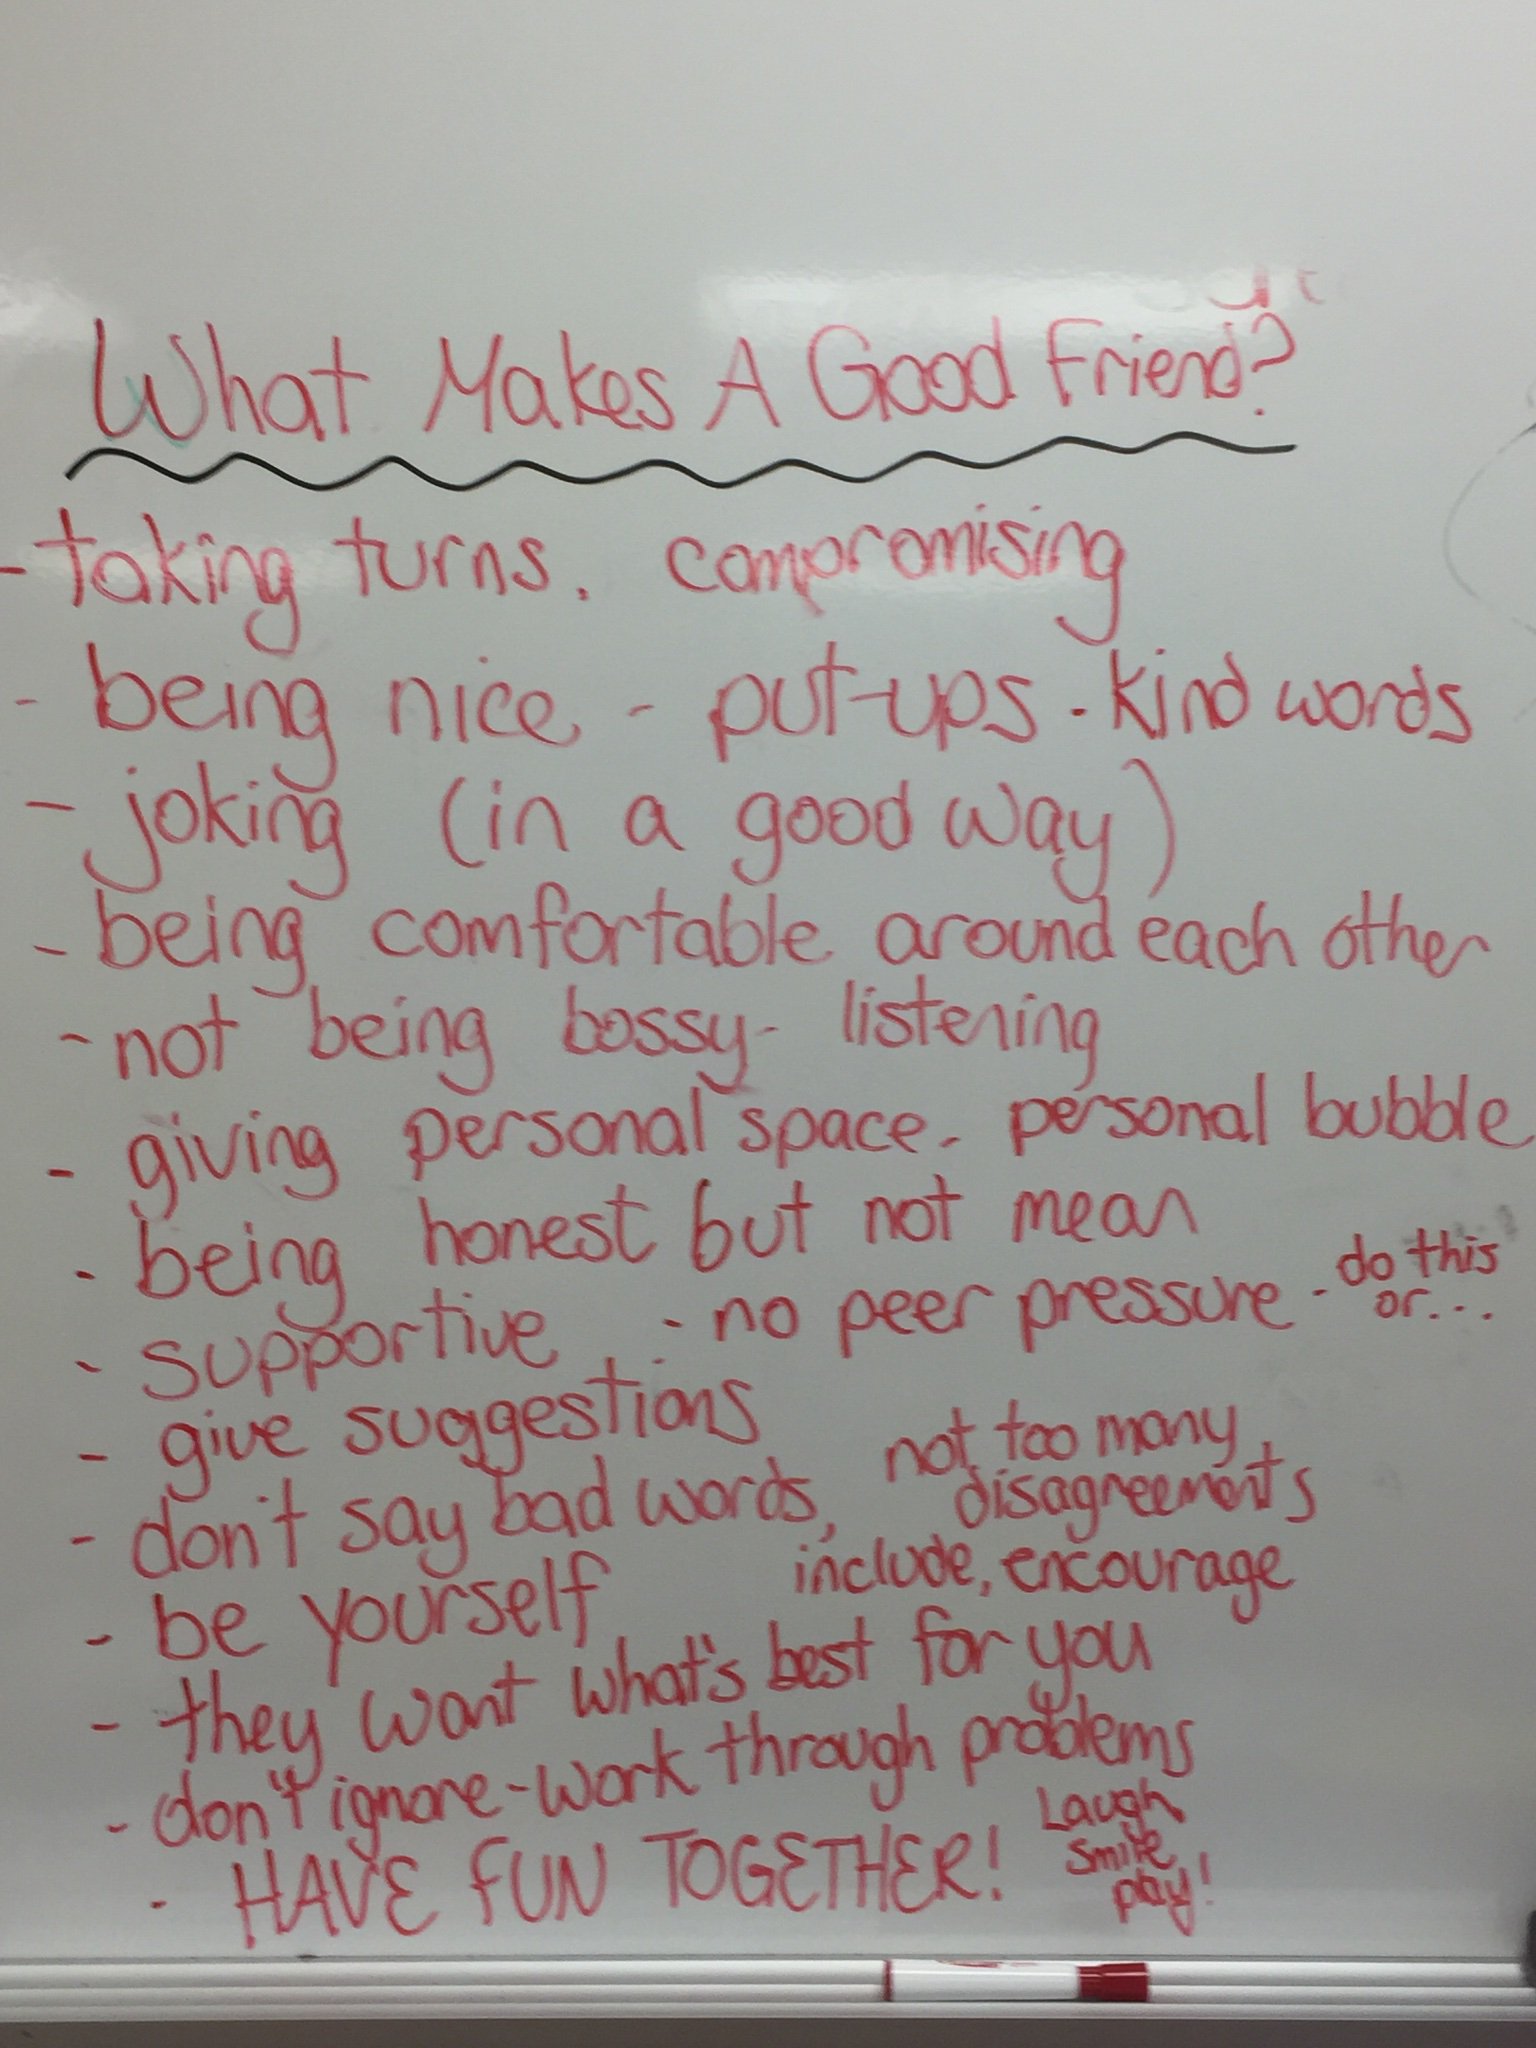 What Makes A Good Friend?
- taking turns. compromising
- being nice - put-ups - kind words
- joking (in a good way)
- being comfortable around each other
- not being bossy - listening
- giving personal space - personal bubble
- being honest but not mean
- supportive - no peer pressure - do this or...
- give suggestions
- don't say bad words, not too many disagreements
- be yourself include, encourage
- they want what's best for you
- don't ignore - work through problems
- HAVE FUN TOGETHER! Laugh
smile
play!